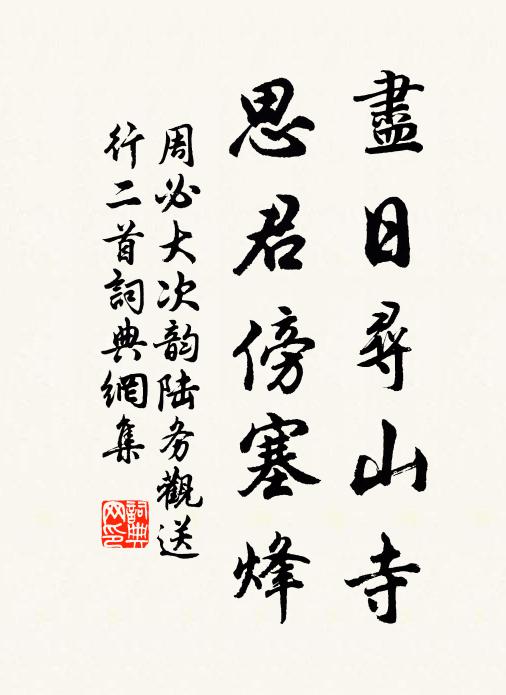 盡日尋山寺
思君傍塞烽
周必大次韵陆务觀送
行二首詞典網集
詞典
网印